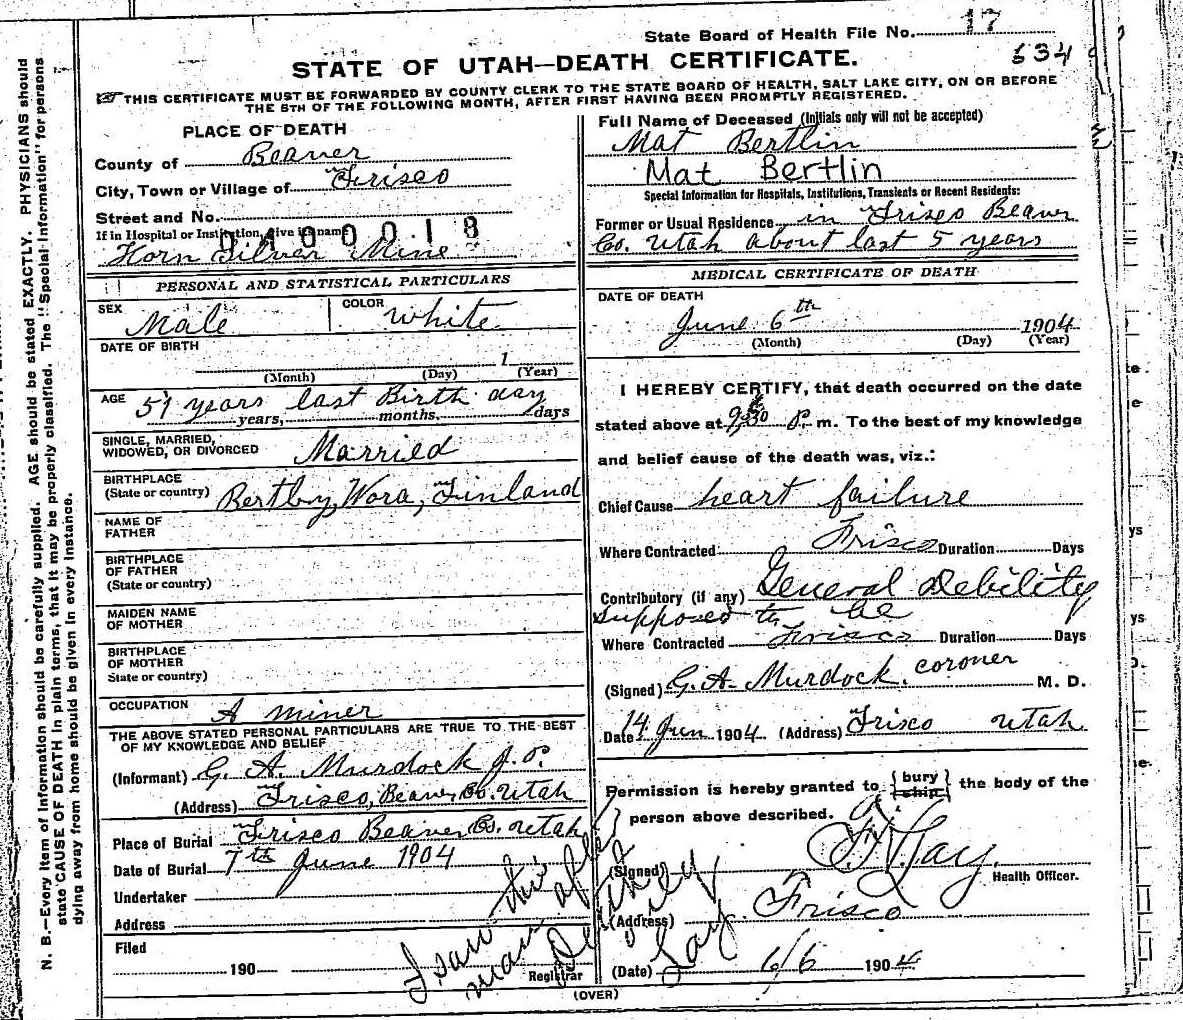 State Board of Health File No. 17
534
STATE OF UTAH—DEATH CERTIFICATE.
THIS CERTIFICATE MUST BE FORWARDED BY COUNTY CLERK TO THE STATE BOARD OF HEALTH, SALT LAKE CITY, ON OR BEFORE
THE 5TH OF THE FOLLOWING MONTH, AFTER FIRST HAVING BEEN PROMPTLY REGISTERED.
N. B.—Every item of information should be carefully supplied. AGE should be stated EXACTLY. PHYSICIANS should
state CAUSE OF DEATH in plain terms, that it may be properly classified. The "Special Information" for persons
dying away from home should be given in every instance.
PLACE OF DEATH
County of Beaver
City, Town or Village of Frisco
Street and No.
If in Hospital or Institution, give its name
Horn Silver Mine
PERSONAL AND STATISTICAL PARTICULARS
SEX Male COLOR White
DATE OF BIRTH
1
(Month) (Day) (Year)
AGE 51 years last Birth day
years, months, days
SINGLE, MARRIED,
WIDOWED, OR DIVORCED Married
BIRTHPLACE
(State or country) Bertby, Wora, Finland
NAME OF
FATHER
BIRTHPLACE
OF FATHER
(State or country)
MAIDEN NAME
OF MOTHER
BIRTHPLACE
OF MOTHER
State or country)
OCCUPATION A miner
THE ABOVE STATED PERSONAL PARTICULARS ARE TRUE TO THE BEST
OF MY KNOWLEDGE AND BELIEF
(Informant) G. A. Murdock J. P.
(Address) Frisco, Beaver Co. Utah
Place of Burial Frisco Beaver Co. Utah
Date of Burial 7th June 1904
Undertaker
Address
Filed
190
Registrar
I saw this
man after
Death
Jay
Full Name of Deceased (Initials only will not be accepted)
Mat Bertlin
Mat Bertlin
Special Information for Hospitals, Institutions, Transients or Recent Residents:
Former or Usual Residence in Frisco Beaver
Co. Utah about last 5 years
MEDICAL CERTIFICATE OF DEATH
DATE OF DEATH
June 6th 1904
(Month) (Day) (Year)
I HEREBY CERTIFY, that death occurred on the date
stated above at 9.30 P. m. To the best of my knowledge
and belief cause of the death was, viz.:
Chief Cause heart failure
Where Contracted Frisco Duration Days
Contributory (if any) General Debility
supposed to be
Where Contracted Frisco Duration Days
(Signed) G. A. Murdock, coroner M. D.
Date 14 Jun 1904 (Address) Frisco Utah
Permission is hereby granted to {bury ship} the body of the
person above described.
(Signed) Jay
Health Officer.
(Address) Frisco
(Date) 6/6 1904
(OVER)